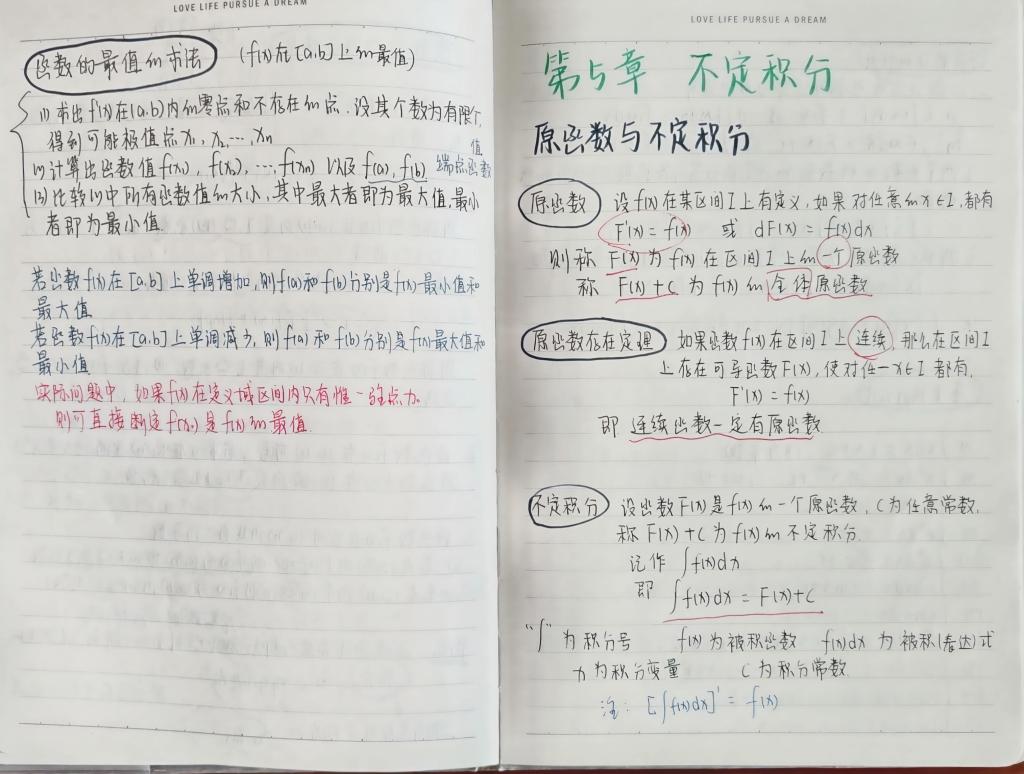 LOVE LIFE PURSUE A DREAM
函数的最值的求法 (f(x)在[a,b]上的最值)
(1) 求出f(x)在(a,b)内的零点和不存在的点.设其个数为有限个,
得到可能极值点x₁, x₂, …, xₙ
(2) 计算出函数值f(x₁), f(x₂), …, f(xₙ) 以及 f(a), f(b) 端点函数值
(3) 比较(2)中所有函数值的大小,其中最大者即为最大值,最小
者即为最小值.
若函数f(x)在[a,b]上单调增加,则f(a)和f(b)分别是f(x)最小值和
最大值
若函数f(x)在[a,b]上单调减少,则f(a)和f(b)分别是f(x)最大值和
最小值
实际问题中,如果f(x)在定义域区间内只有惟一驻点x₀
则可直接断定f(x₀)是f(x)的最值.
LOVE LIFE PURSUE A DREAM
第5章 不定积分
原函数与不定积分
原函数 设f(x)在某区间I上有定义,如果对任意的x∈I,都有
F'(x) = f(x) 或 dF(x) = f(x)dx
则称 F(x)为f(x)在区间I上的一个原函数
称 F(x)+C 为f(x)的全体原函数
原函数存在定理 如果函数f(x)在区间I上连续,那么在区间I
上存在可导函数F(x),使对任一x∈I都有,
F'(x) = f(x)
即 连续函数一定有原函数
不定积分 设函数F(x)是f(x)的一个原函数,C为任意常数,
称F(x)+C为f(x)的不定积分.
记作 ∫f(x)dx
即 ∫f(x)dx = F(x)+C
“∫”为积分号 f(x)为被积函数 f(x)dx 为被积(表达)式
x为积分变量 C为积分常数.
注: [∫f(x)dx]' = f(x)